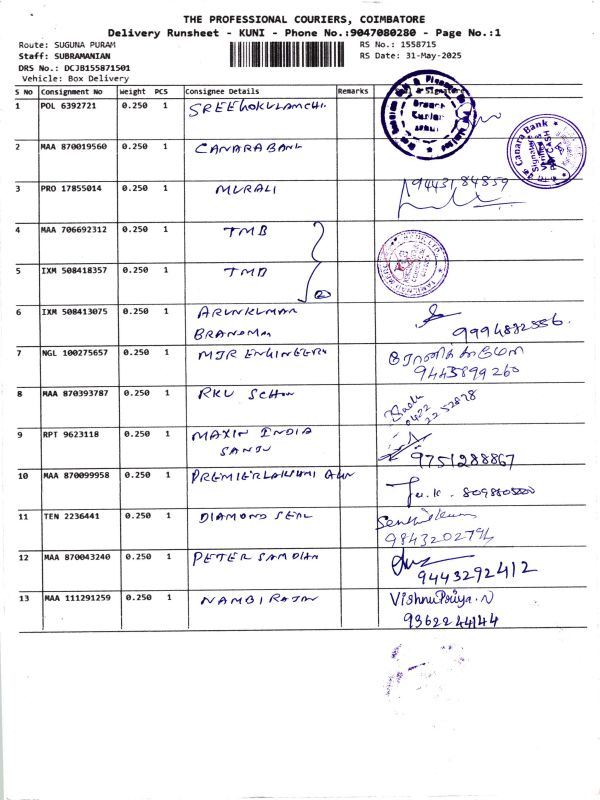 THE PROFESSIONAL COURIERS, COIMBATORE
Delivery Runsheet - KUNI - Phone No.:9047080280 - Page No.:1
Route: SUGUNA PURAM
RS No.: 1558715
Staff: SUBRAMANIAN
RS Date: 31-May-2025
DRS No.: DCJB155871501
Vehicle: Box Delivery
S NO Consignment No Weight PCS Consignee Details Remarks & Signature
1 POL 6392721 0.250 1
2 MAA 870019560 0.250 1 CANARA BANK
Canara Bank
3 PRO 17855014 0.250 1 MURALI 9443184859
4 MAA 706692312 0.250 1 TMB
5 IXM 508418357 0.250 1 TMB
6 IXM 508413075 0.250 1 ARUNKUMAR
9994882556.
7 NGL 100275657 0.250 1 MJR ENGINEERS
9443899260
8 MAA 870393787 0.250 1 RKV
0422
2252878
9 RPT 9623118 0.250 1 MAXIN INDIA
9751288867
10 MAA 870099958 0.250 1 PREMIER LAKSHMI
11 TEN 2236441 0.250 1 DIAMOND SEAL Senthilkumar
9843202794
12 MAA 870043240 0.250 1 PETER
9443292412
13 MAA 111291259 0.250 1 NAMBIRAJAN VishnuPriya.N
9362244144